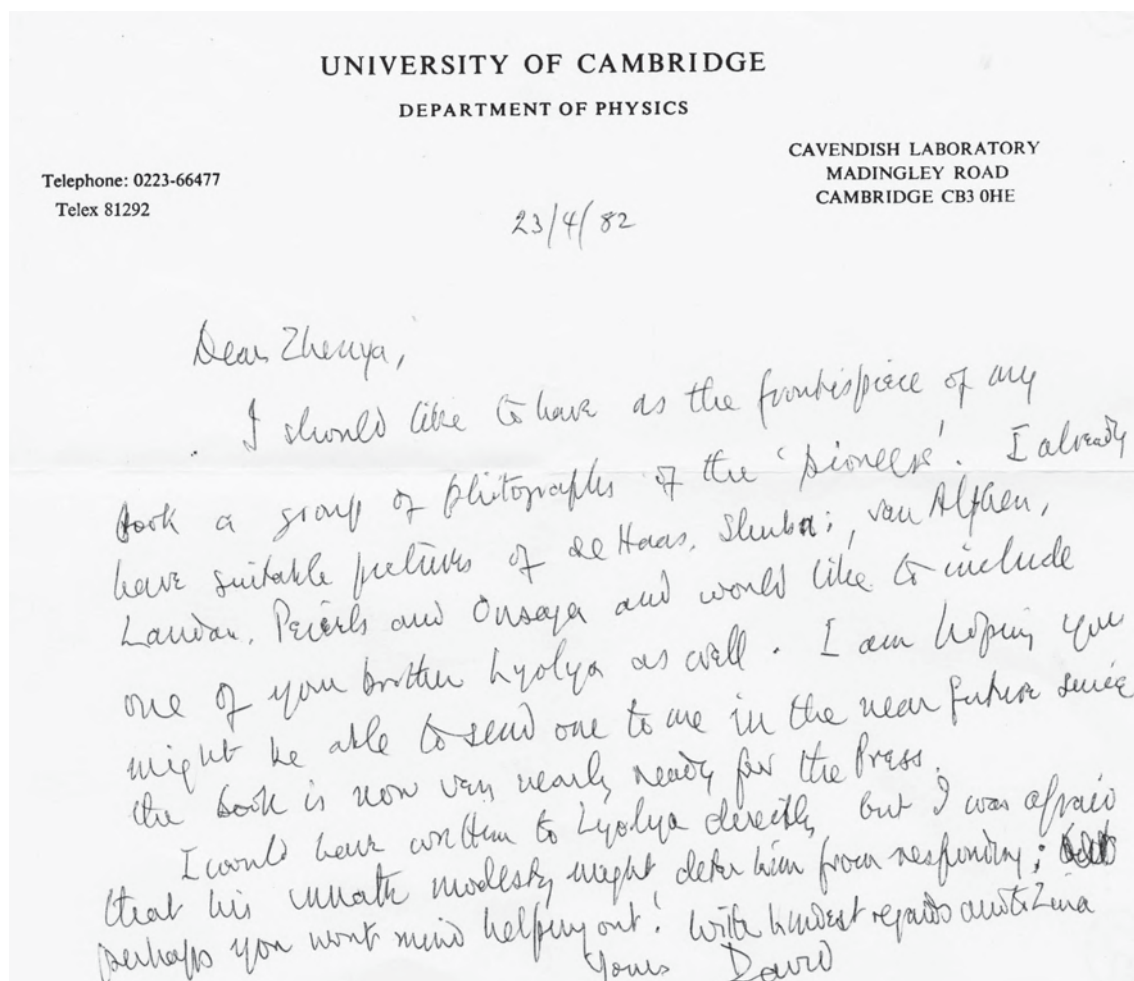 UNIVERSITY OF CAMBRIDGE
DEPARTMENT OF PHYSICS
CAVENDISH LABORATORY
MADINGLEY ROAD
CAMBRIDGE CB3 0HE
Telephone: 0223-66477
Telex 81292
23/4/82
Dear Zhenya,
I should like to have as the frontispiece of my
book a group of photographs of the 'pioneers'. I already
have suitable pictures of de Haas, Shubni, van Alphen,
Landau, Peierls and Onsager and would like to include
one of your brother Lyolya as well. I am hoping you
might be able to send one to me in the near future since
the book is now very nearly ready for the Press.
I would have written to Lyolya directly but I was afraid
that his innate modesty might deter him from responding;
perhaps you wont mind helping out! With kindest regards and to Zina
Yours David